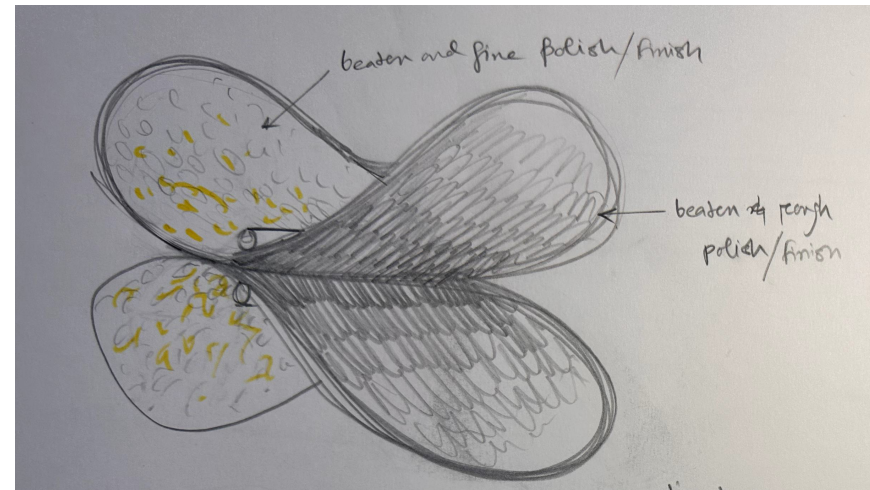 beaten and fine polish/finish
beaten rough
polish/finish